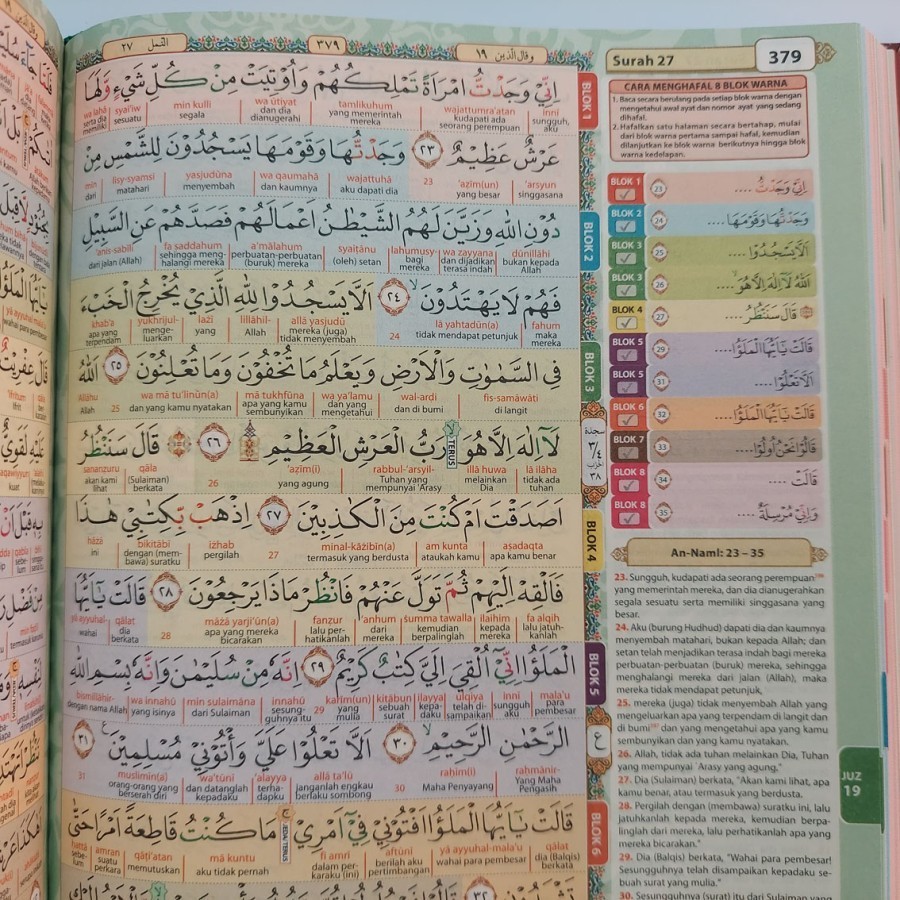 النمل ٢٧
٣٧٩
وقال الذين ١٩
Surah 27
379
اِنِّيْ وَجَدْتُّ امْرَاَةً تَمْلِكُهُمْ وَاُوْتِيَتْ مِنْ كُلِّ شَيْءٍ وَّلَهَا
inni wajattumra'atan tamlikuhum wa ūtiyat min kulli syai'iw wa lahā
sungguh, aku kudapati ada seorang perempuan yang memerintah mereka dan dia dianugerahi segala sesuatu serta dia memiliki
عَرْشٌ عَظِيْمٌ ﴿٢٣﴾ وَجَدْتُّهَا وَقَوْمَهَا يَسْجُدُوْنَ لِلشَّمْسِ مِنْ
'arsyun 'aẓīm(un) 23 wajattuhā wa qaumahā yasjudūna lisy-syamsi min
singgasana yang besar aku dapati dia dan kaumnya menyembah matahari dari
دُوْنِ اللّٰهِ وَزَيَّنَ لَهُمُ الشَّيْطٰنُ اَعْمَالَهُمْ فَصَدَّهُمْ عَنِ السَّبِيْلِ
dūnillāhi wa zayyana lahumusy- syaiṭānu a'mālahum fa ṣaddahum 'anis-sabīli
bukan kepada Allah dan dijadikan terasa indah bagi mereka (oleh) setan perbuatan-perbuatan (buruk) mereka sehingga menghalangi mereka dari jalan (Allah)
فَهُمْ لَا يَهْتَدُوْنَ ﴿٢٤﴾ اَلَّا يَسْجُدُوْا لِلّٰهِ الَّذِيْ يُخْرِجُ الْخَبْءَ
fahum lā yahtadūn(a) 24 allā yasjudū lillāhil- lażī yukhrijul- khab'a
maka mereka tidak mendapat petunjuk mereka (juga) tidak menyembah Allah yang mengeluarkan apa yang terpendam
فِى السَّمٰوٰتِ وَالْاَرْضِ وَيَعْلَمُ مَا تُخْفُوْنَ وَمَا تُعْلِنُوْنَ ﴿٢٥﴾ اَللّٰهُ
fis-samāwāti wal-arḍi wa ya'lamu mā tukhfūna wa mā tu'linūn(a) 25 Allāhu
di langit dan di bumi dan yang mengetahui apa yang kamu sembunyikan dan yang kamu nyatakan Allah
لَآ اِلٰهَ اِلَّا هُوَ رَبُّ الْعَرْشِ الْعَظِيْمِ ﴿٢٦﴾ قَالَ سَنَنْظُرُ
TERUS
lā ilāha illā huwa rabbul-'arsyil- 'aẓīm(i) 26 qāla sananẓuru
tidak ada tuhan melainkan Dia Tuhan yang mempunyai 'Arasy yang agung (Sulaiman) berkata akan kami lihat
اَصَدَقْتَ اَمْ كُنْتَ مِنَ الْكٰذِبِيْنَ ﴿٢٧﴾ اِذْهَبْ بِّكِتٰبِيْ هٰذَا
aṣadaqta am kunta minal-kāżibīn(a) 27 iżhab bikitābī hāżā
apa kamu benar ataukah kamu termasuk yang berdusta pergilah dengan (membawa) suratku ini
فَاَلْقِهْ اِلَيْهِمْ ثُمَّ تَوَلَّ عَنْهُمْ فَانْظُرْ مَاذَا يَرْجِعُوْنَ ﴿٢٨﴾ قَالَتْ يٰٓاَيُّهَا
fa alqih ilaihim ṡumma tawalla 'anhum fanẓur māżā yarji'ūn(a) 28 qālat yā ayyuhal-
lalu jatuhkanlah kepada mereka kemudian berpalinglah dari mereka lalu perhatikanlah apa yang mereka bicarakan dia berkata wahai
الْمَلَؤُا اِنِّيْٓ اُلْقِيَ اِلَيَّ كِتٰبٌ كَرِيْمٌ ﴿٢٩﴾ اِنَّهٗ مِنْ سُلَيْمٰنَ وَاِنَّهٗ بِسْمِ اللّٰهِ
mala'u innī ulqiya ilayya kitābun karīm(un) 29 innahū min sulaimāna wa innahū bismillāhir-
para pembesar sungguh aku telah disampaikan kepadaku sebuah surat yang mulia sesungguhnya itu dari Sulaiman yang isinya dengan nama Allah
الرَّحْمٰنِ الرَّحِيْمِ ﴿٣٠﴾ اَلَّا تَعْلُوْا عَلَيَّ وَأْتُوْنِيْ مُسْلِمِيْنَ ﴿٣١﴾
raḥmānir- raḥīm(i) 30 allā ta'lū 'alayya wa'tūnī muslimīn(a) 31
Yang Maha Pengasih Maha Penyayang janganlah engkau berlaku sombong terhadapku dan datanglah kepadaku orang-orang yang berserah diri
قَالَتْ يٰٓاَيُّهَا الْمَلَؤُا اَفْتُوْنِيْ فِيْٓ اَمْرِيْ مَا كُنْتُ قَاطِعَةً اَمْرًا حَتّٰى
qālat yā ayyuhal-mala'u aftūnī fī amrī mā kuntu qāṭi'atan amran ḥattā
dia (Balqis) berkata wahai para pembesar berilah aku pertimbangan dalam perkaraku (ini) aku tidak pernah memutuskan suatu perkara sebelum
BLOK 1
BLOK 2
BLOK 3
BLOK 4
BLOK 5
BLOK 6
CARA MENGHAFAL 8 BLOK WARNA
1. Baca secara berulang pada setiap blok warna dengan
mengetahui awal ayat dan nomor ayat yang sedang
dihafal.
2. Hafalkan satu halaman secara bertahap, mulai
dari blok warna pertama sampai hafal, kemudian
dilanjutkan ke blok warna berikutnya hingga blok
warna kedelapan.
BLOK 1 23 اِنِّيْ وَجَدْتُّ ....
BLOK 2 24 وَجَدْتُّهَا وَقَوْمَهَا ...
BLOK 3 25 اَلَّا يَسْجُدُوْا ....
BLOK 3 26 اَللّٰهُ لَآ اِلٰهَ اِلَّا هُوَ ....
BLOK 4 27 قَالَ سَنَنْظُرُ ....
BLOK 5 29 قَالَتْ يٰٓاَيُّهَا الْمَلَؤُا ....
BLOK 5 31 اَلَّا تَعْلُوْا ....
BLOK 6 32 قَالَتْ يٰٓاَيُّهَا الْمَلَؤُا ....
BLOK 7 33 قَالُوْا نَحْنُ اُولُوْا ....
BLOK 8 34 قَالَتْ ....
BLOK 8 35 وَاِنِّيْ مُرْسِلَةٌ ....
An-Naml: 23 – 35
23. Sungguh, kudapati ada seorang perempuan
yang memerintah mereka, dan dia dianugerahi
segala sesuatu serta memiliki singgasana yang
besar.
24. Aku (burung Hudhud) dapati dia dan kaumnya
menyembah matahari, bukan kepada Allah; dan
setan telah menjadikan terasa indah bagi mereka
perbuatan-perbuatan (buruk) mereka, sehingga
menghalangi mereka dari jalan (Allah), maka
mereka tidak mendapat petunjuk,
25. mereka (juga) tidak menyembah Allah yang
mengeluarkan apa yang terpendam di langit dan
di bumi dan yang mengetahui apa yang kamu
sembunyikan dan yang kamu nyatakan.
26. Allah, tidak ada tuhan melainkan Dia, Tuhan
yang mempunyai 'Arasy yang agung."
27. Dia (Sulaiman) berkata, "Akan kami lihat, apa
kamu benar, atau termasuk yang berdusta.
28. Pergilah dengan (membawa) suratku ini, lalu
jatuhkanlah kepada mereka, kemudian berpa-
linglah dari mereka, lalu perhatikanlah apa yang
mereka bicarakan."
29. Dia (Balqis) berkata, "Wahai para pembesar!
Sesungguhnya telah disampaikan kepadaku se-
buah surat yang mulia."
30. Sesungguhnya (surat) itu dari Sulaiman yang
JUZ
19